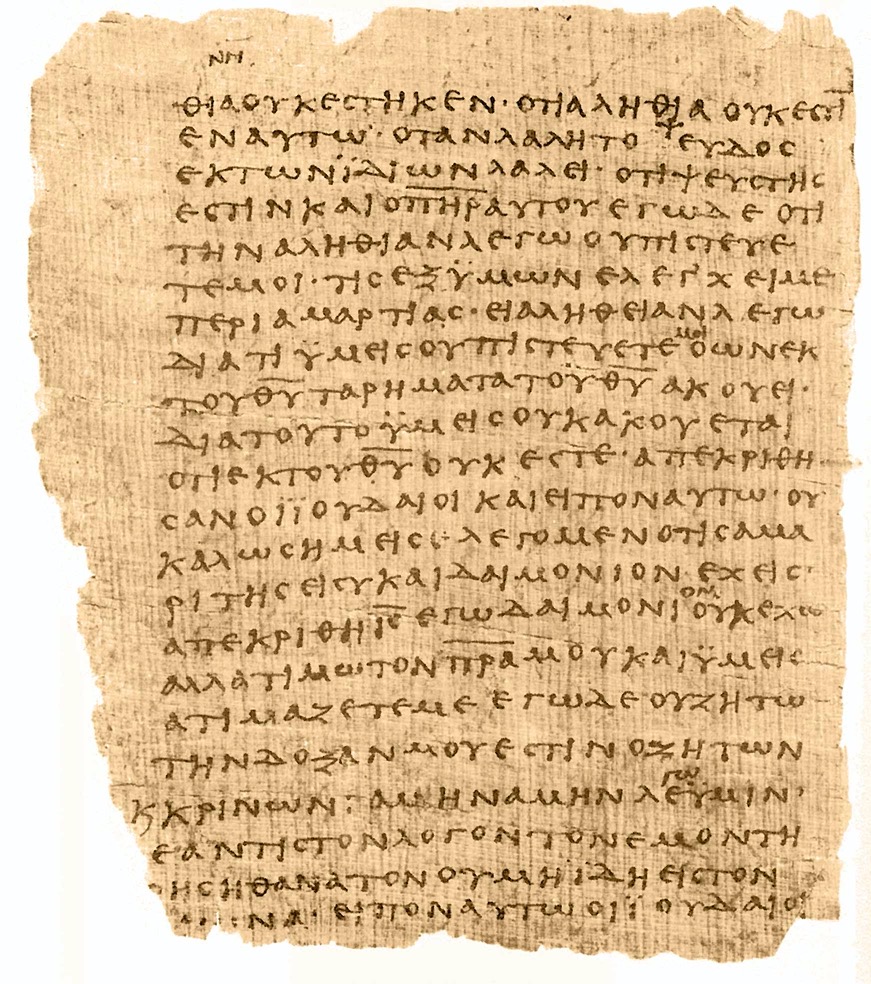 ΝΗ
ΘΙΑΟΥΚΕΣΤΗΚΕΝ· ΟΤΙΑΛΗΘΙΑ ΟΥΚΕΣΤΙ
ΕΝΑΥΤΩ· ΟΤΑΝΛΑΛΗΤΟ ΨΕΥΔΟΣ
ΕΚΤΩΝΪΔΙΩΝΛΑΛΕΙ· ΟΤΙΨΕΥΣΤΗΣ
ΕΣΤΙΝΚΑΙΟΠΗΡΑΥΤΟΥΕΓΩΔΕ ΟΤΙ
ΤΗΝΑΛΗΘΙΑΝΛΕΓΩΟΥΠΙΣΤΕΥΕ
ΤΕΜΟΙ· ΤΙΣΕΞΫΜΩΝΕΛΕΓΧΕΙΜΕ
ΠΕΡΙΑΜΑΡΤΙΑΣ· ΕΙΑΛΗΘΕΙΑΝΛΕΓΩ
ΔΙΑΤΙΫΜΕΙΣΟΥΠΙΣΤΕΥΕΤΕμοιΟΩΝΕΚ
ΤΟΥΘΥΤΑΡΗΜΑΤΑΤΟΥΘΥΑΚΟΥΕΙ·
ΔΙΑΤΟΥΤΟΫΜΕΙΣΟΥΚΑΚΟΥΕΤΑΙ
ΟΤΙΕΚΤΟΥΘΥΟΥΚΕΣΤΕ· ΑΠΕΚΡΙΘΗ
ΣΑΝΟΙΪΟΥΔΑΙΟΙ ΚΑΙΕΙΠΟΝΑΥΤΩ· ΟΥ
ΚΑΛΩΣΗΜΕΙΣ ΛΕΓΟΜΕΝΟΤΙΣΑΜΑ
ΡΙΤΗΣΕΙΣΥΚΑΙΔΑΙΜΟΝΙΟΝ·ΕΧΕΙΣ·
ΑΠΕΚΡΙΘΗΙΣΕΓΩΔΑΙΜΟΝΙονΟΥΚΕΧΩ
ΑΛΛΑΤΙΜΩΤΟΝΠΡΑΜΟΥΚΑΙΫΜΕΙΣ
ΑΤΙΜΑΖΕΤΕΜΕ ΕΓΩΔΕΟΥΖΗΤΩ
ΤΗΝΔΟΞΑΝΜΟΥΕΣΤΙΝΟΖΗΤΩΝ
ΚΚΡΙΝΩΝ· ΑΜΗΝΑΜΗΝΛΕγωΫΜΙΝ·
ΕΑΝΤΙΣΤΟΝΛΟΓΟΝΤΟΝΕΜΟΝΤΗ
ΗΣΗΘΑΝΑΤΟΝΟΥΜΗΙΔΗΕΙΣΤΟΝ
ΝΑ· ΕΙΠΟΝΑΥΤΩΟΙΪΟΥΔΑΙΟΙ